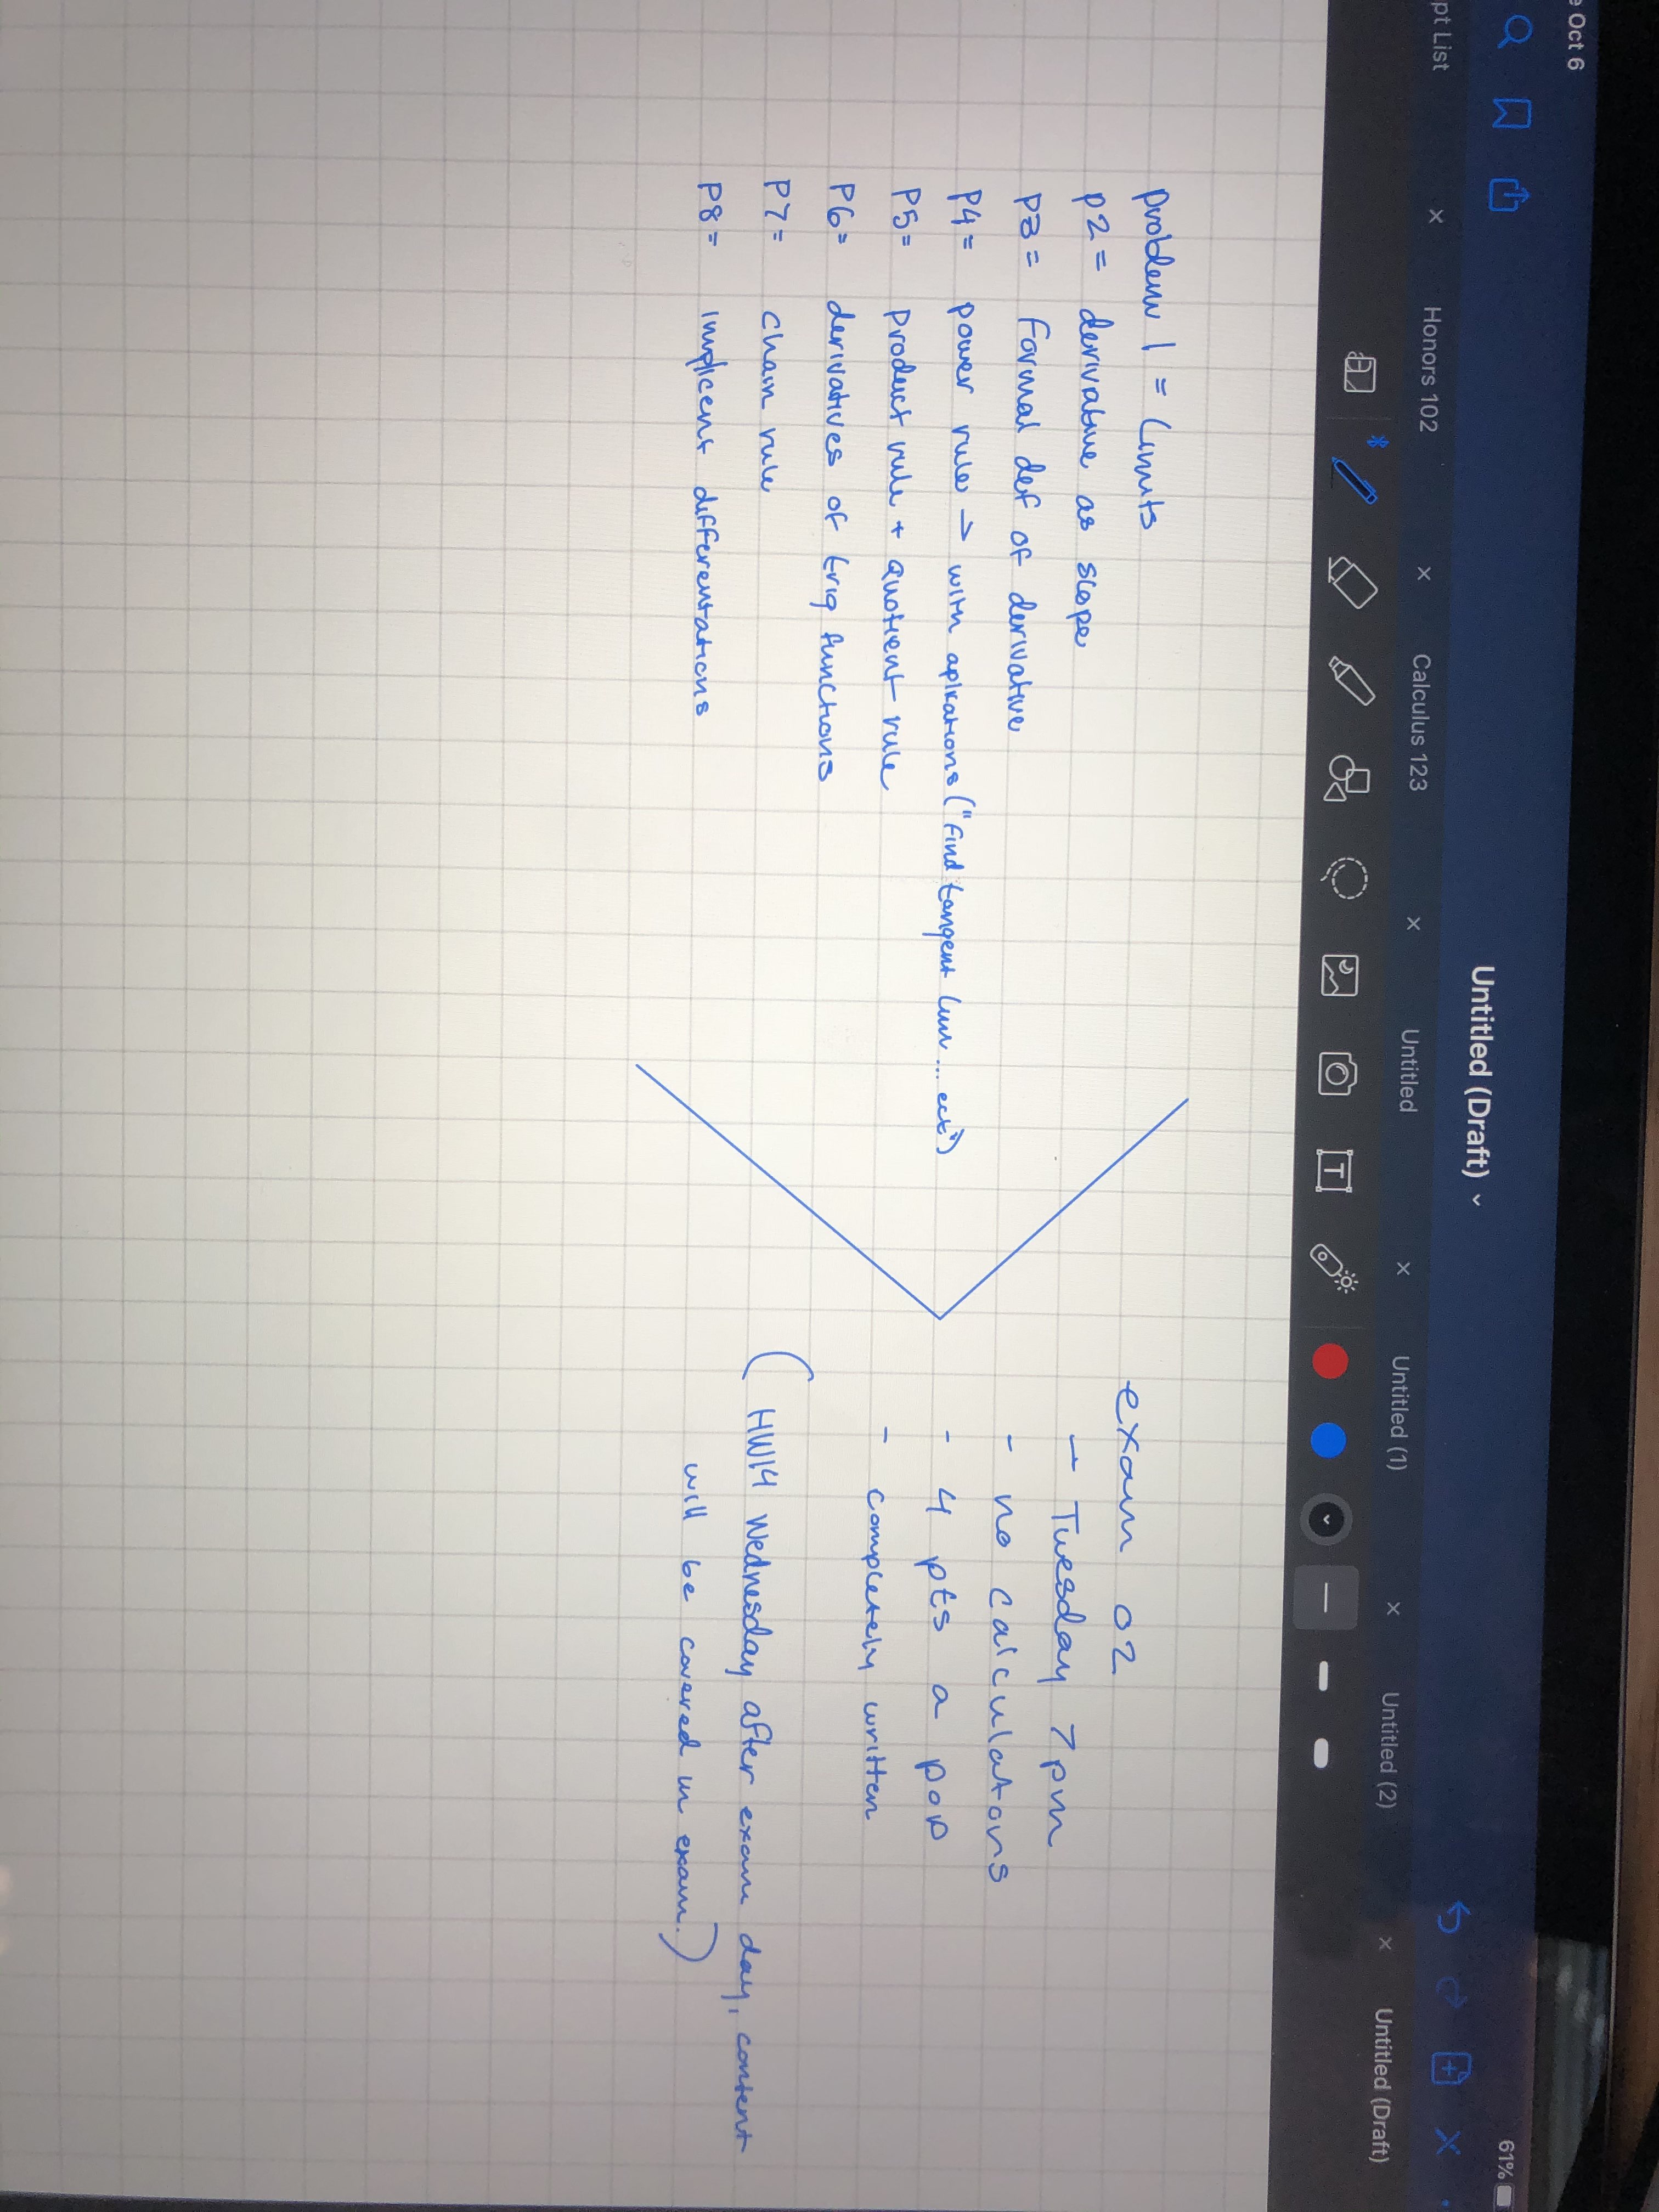 e Oct 6
61%
Untitled (Draft)
pt List
Honors 102
Calculus 123
Untitled
Untitled (1)
Untitled (2)
Untitled (Draft)
T
problem 1 = Limits
p2 = derivative as slope
p3 = Formal def of derivative
P4 = power rule → with aplications ("Find tangent line ... ect")
P5 = Product rule + Quotient rule
P6 = derivatives of trig functions
P7 = chain rule
P8 = implicent differentations
exam 02
- Tuesday 7pm
- no calculators
- 4 pts a pop
- completely written
( HW14 Wednesday after exam day, content
will be covered in exam.)